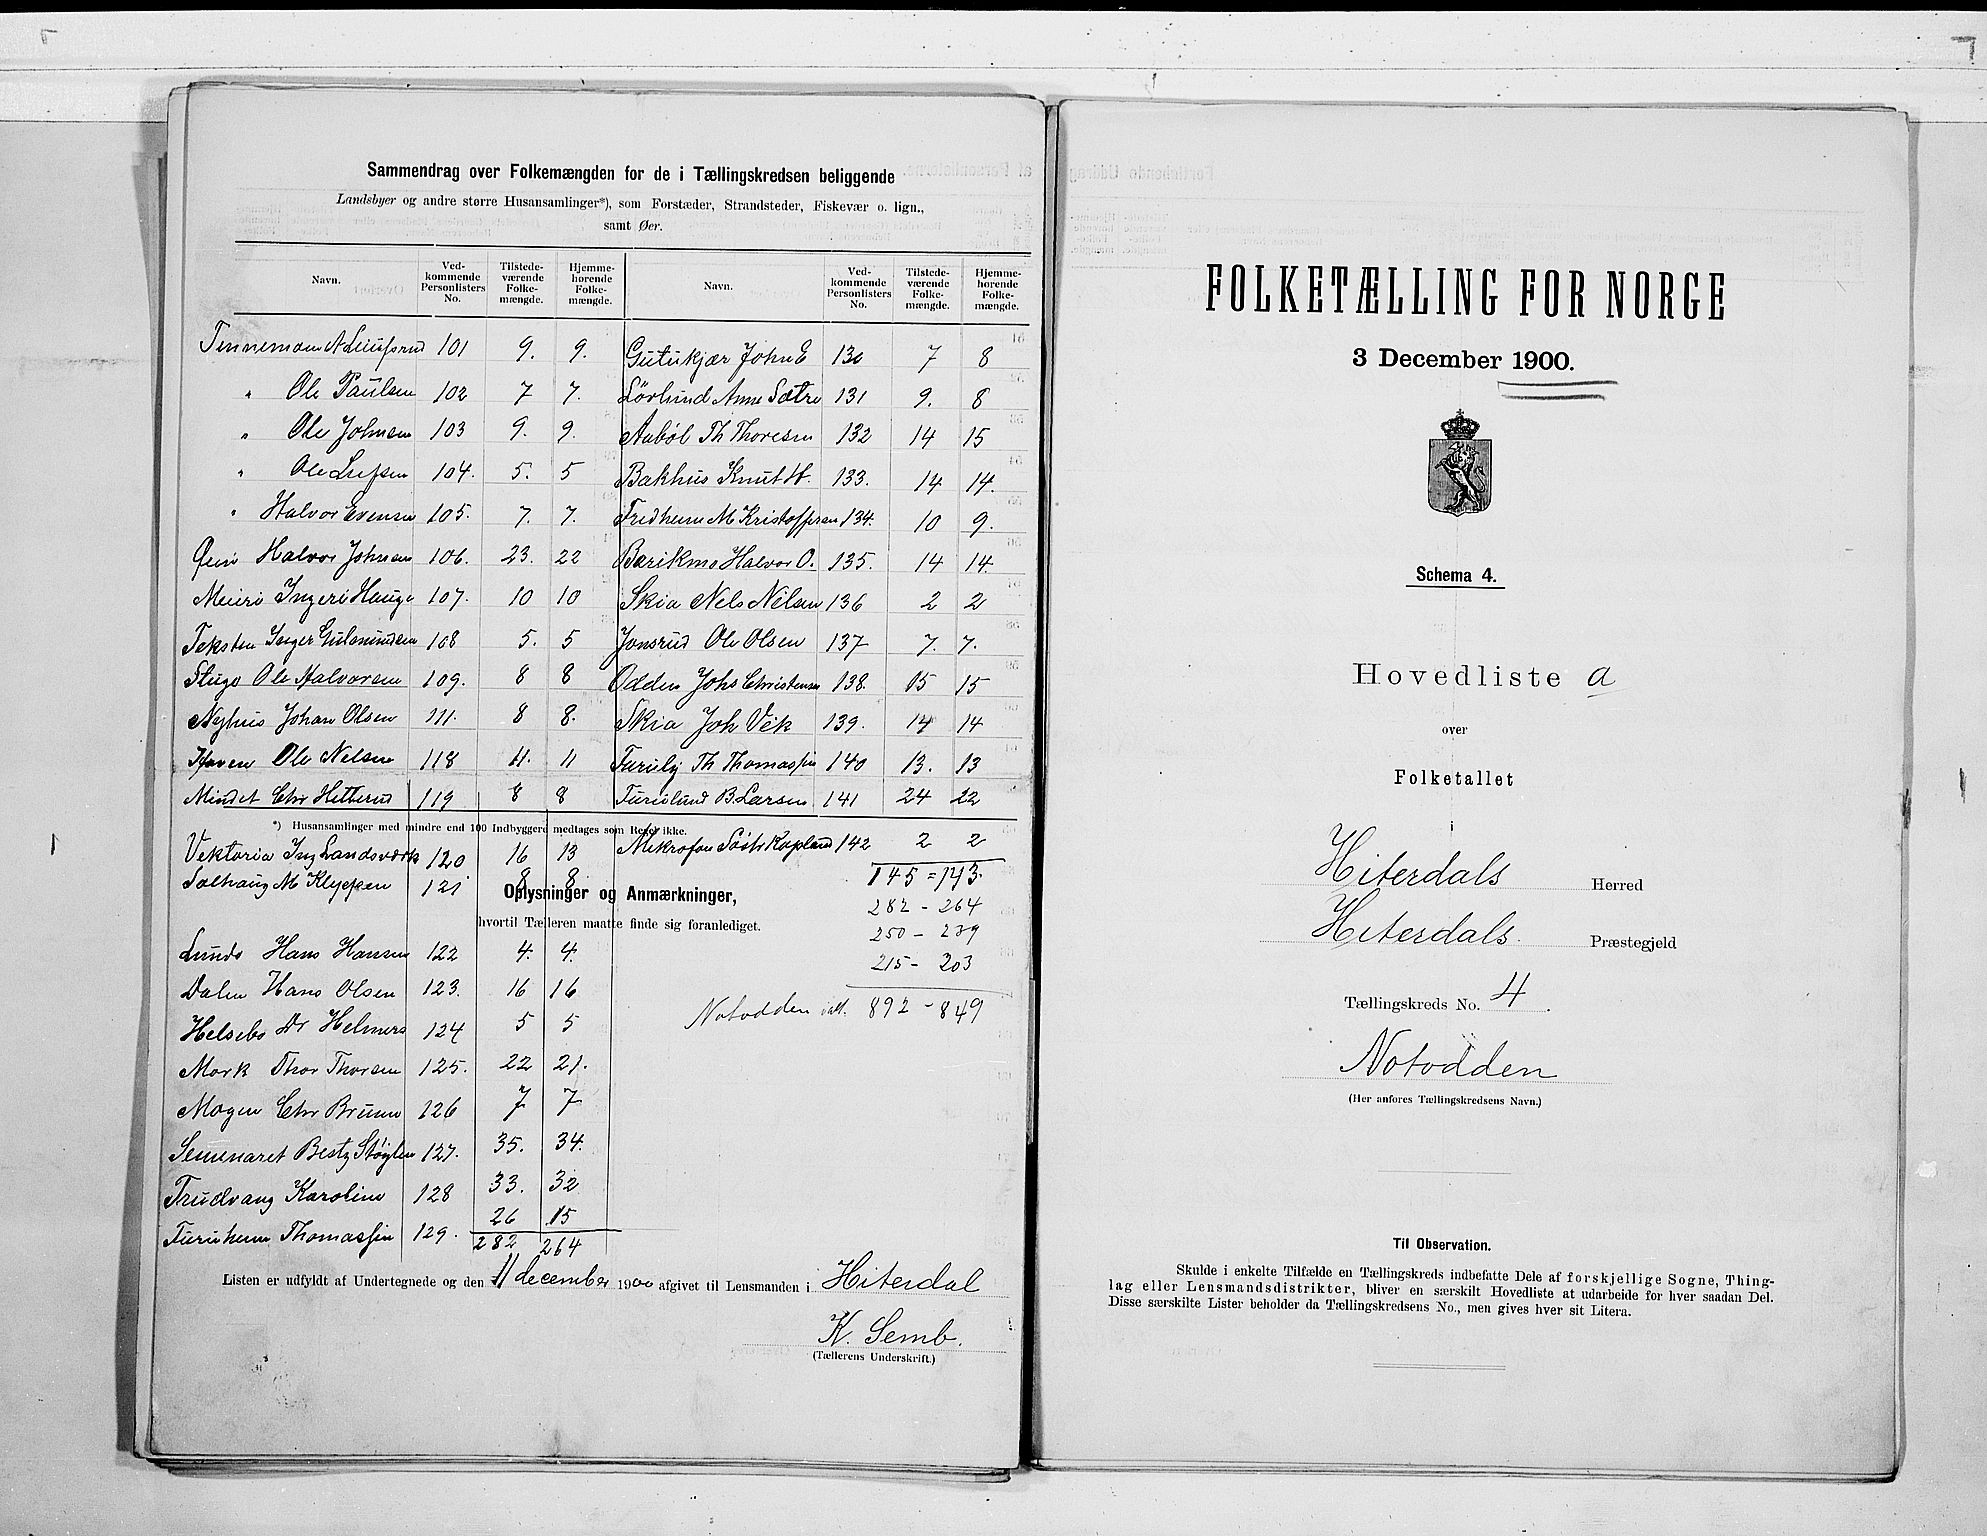 Sammendrag over Folkemængden for de i Tællingskredsen beliggende
Landsbyer og andre større Husansamlinger*), som Forstæder, Strandsteder, Fiskevær o. lign.,
samt Øer.
Navn. Vedkommende Personlisters No. Tilstedeværende Folkemængde. Hjemmehørende Folkemængde.
101 9. 9.
" Ole Paulsen 102 7 7.
" Ole Johnsen 103 9. 9.
" Ole 104. 5. 5
" Halvor Evensen 105. 7. 7.
Halvor Johnsen 106. 23. 22
Meieri Ingeri Hauge 107. 10 10
Teksten Inger Gulmundsen 108 5. 5
Flugo Ole Halvorsen 109. 8 8
Nyhus Johan Olsen 111. 8 8.
Haven Ole Nelsen 118 11. 11
Mindet Chr Hitterud 119 8 8
Vektoria Ing Landsværk 120 16 13
Solhaug M Klyppen 121 8 8
Lunde Hans Hansen 122 4. 4.
Dalen Hans Olsen 123. 16 16
Helsebo Dr Helmers 124 5 5
Mork Thor Thorsen 125. 22 21.
Mogen Chr Bruun 126 7 7
Semenaret Besty Støylen 127. 35. 34.
Trudvang Karoline 128 33. 32
Furuheim Thomassen 129. 26 15
282 264
Navn. Vedkommende Personlisters No. Tilstedeværende Folkemængde. Hjemmehørende Folkemængde.
Gutukjær John E 130 7 8
Lörlund Anne Sætre 131 9. 8
Aaböl Th Thoresen 132 14 15
Bakhus Knut H. 133. 14 14.
Fredheim M Kristoffersen 134. 10 9.
Halvor O. 135. 14 14.
Skia Nels Nelsen 136 2 2
Jonsrud Ole Olsen 137 7. 7.
Odden Johs Christensen 138. 15 15
Skia Joh Vik 139. 14 14
Furuly Th Thomassen 140 13. 13
Furulund B. Larsen 141 24 22
Mikrofon 142 2 2
145 = 143.
282 - 264
250 - 239
215 - 203
Notodden ialt. 892 - 849
*) Husansamlinger med mindre end 100 Indbyggere medtages som Regel ikke.
Oplysninger og Anmærkninger,
hvortil Tælleren maatte finde sig foranlediget.
Listen er udfyldt af Undertegnede og den 11 december 1900 afgivet til Lensmanden i Hiterdal
K. Semb.
(Tællerens Underskrift.)
FOLKETÆLLING FOR NORGE
3 December 1900.
Schema 4.
Hovedliste a
over
Folketallet
i
Hiterdals Herred
Hiterdals. Præstegjeld
Tællingskreds No. 4.
Notodden
(Her anføres Tællingskredsens Navn.)
Til Observation.
Skulde i enkelte Tilfælde en Tællingskreds indbefatte Dele af forskjellige Sogne, Thing-
lag eller Lensmandsdistrikter, bliver en særskilt Hovedliste at udarbeide for hver saadan Del.
Disse særskilte Lister beholder da Tællingskredsens No., men gives hver sit Litera.